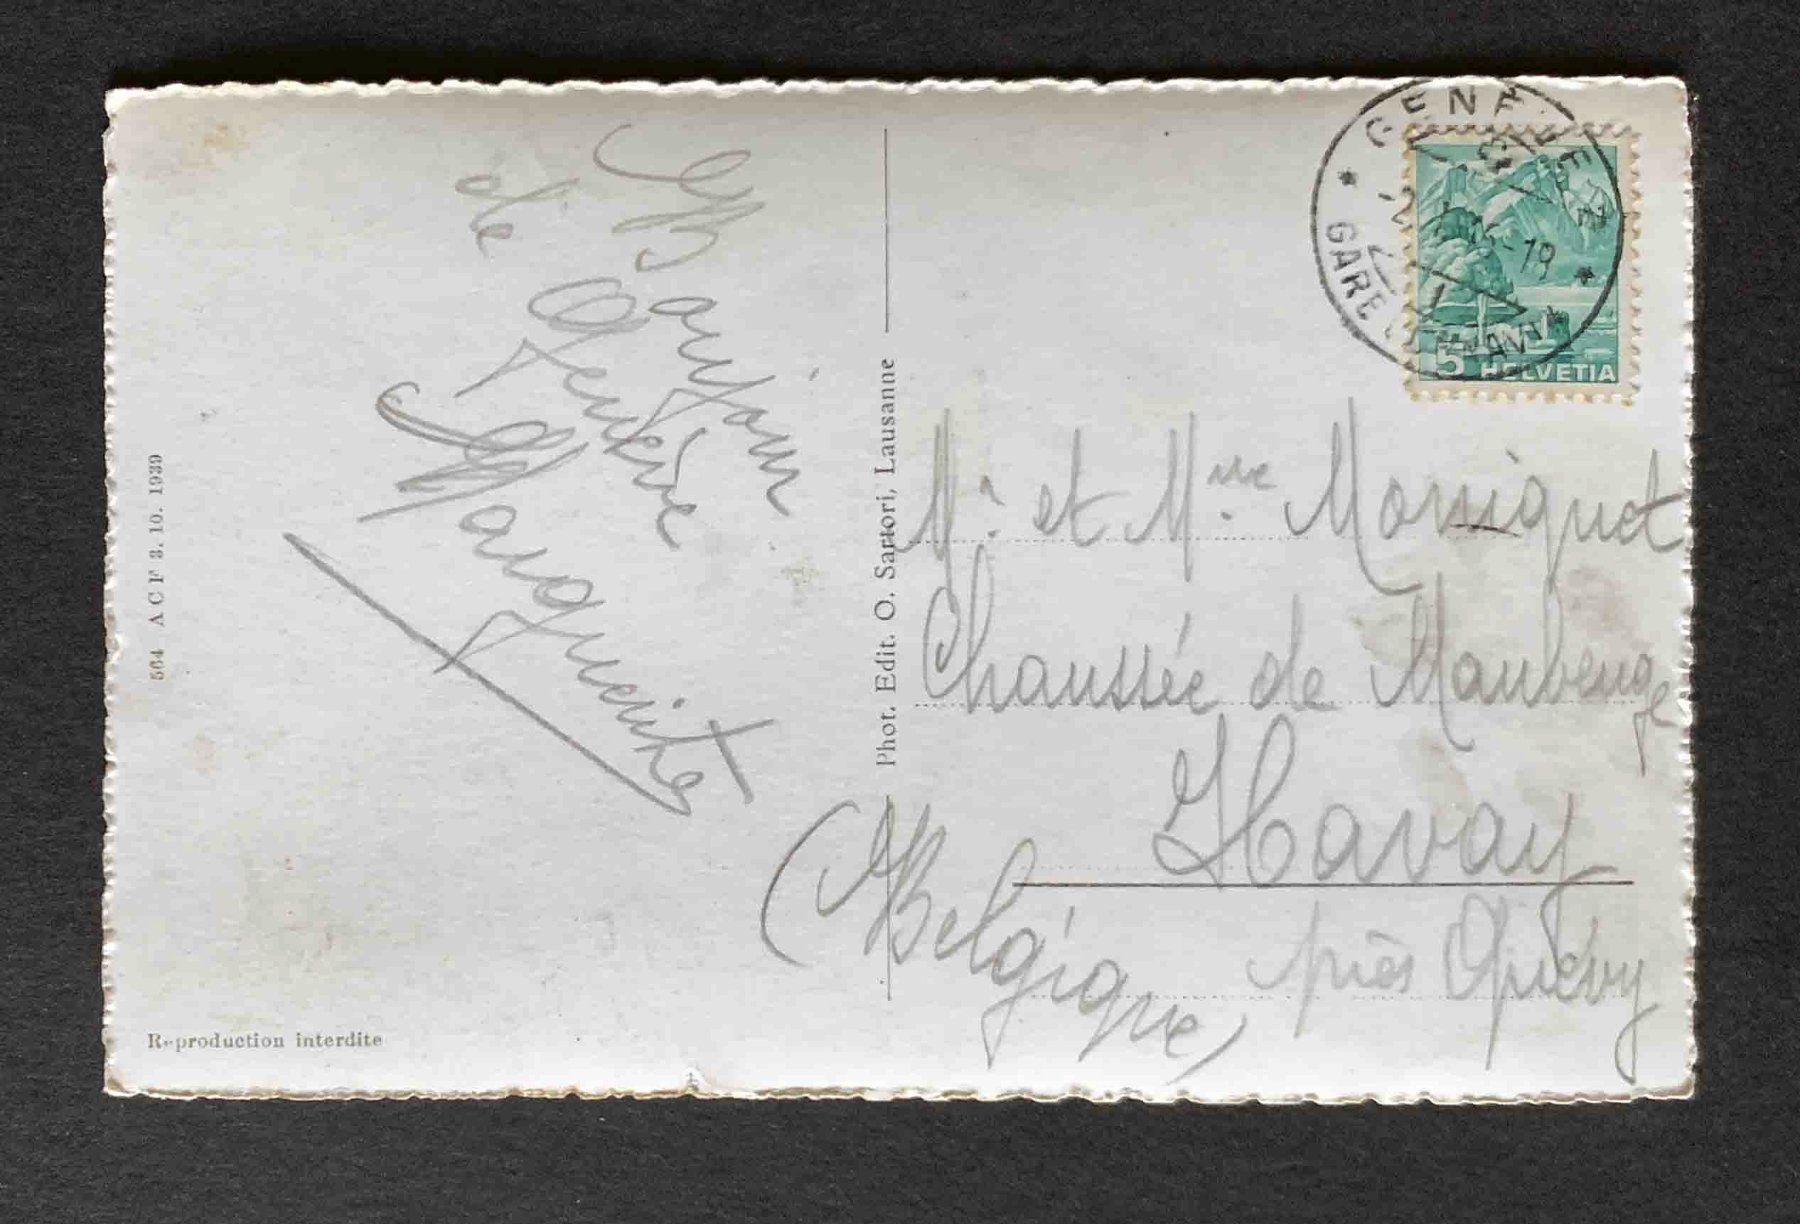 Bonjour
de Genève
Marguerite
564 A C F 3. 10. 1939
Reproduction interdite
Phot. Edit. O. Sartori, Lausanne
GENÈVE
GARE CORNAVIN
-19
5 HELVETIA
Mr. et Mme
Chaussée de Maubeuge
Havay
près Quévy
(Belgique)